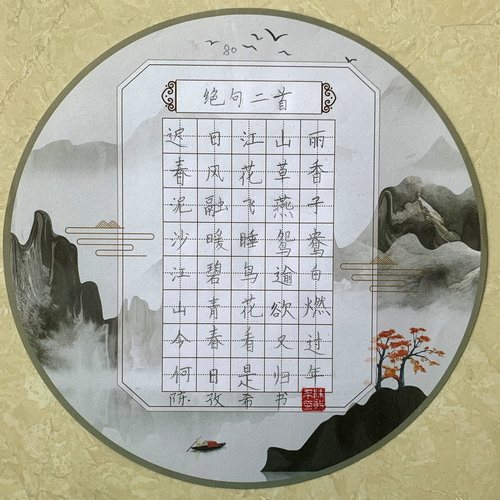 80
绝句二首
迟日江山丽
春风花草香
泥融飞燕子
沙暖睡鸳鸯
江碧鸟逾白
山青花欲燃
今春看又过
何日是归年
陈孜希书